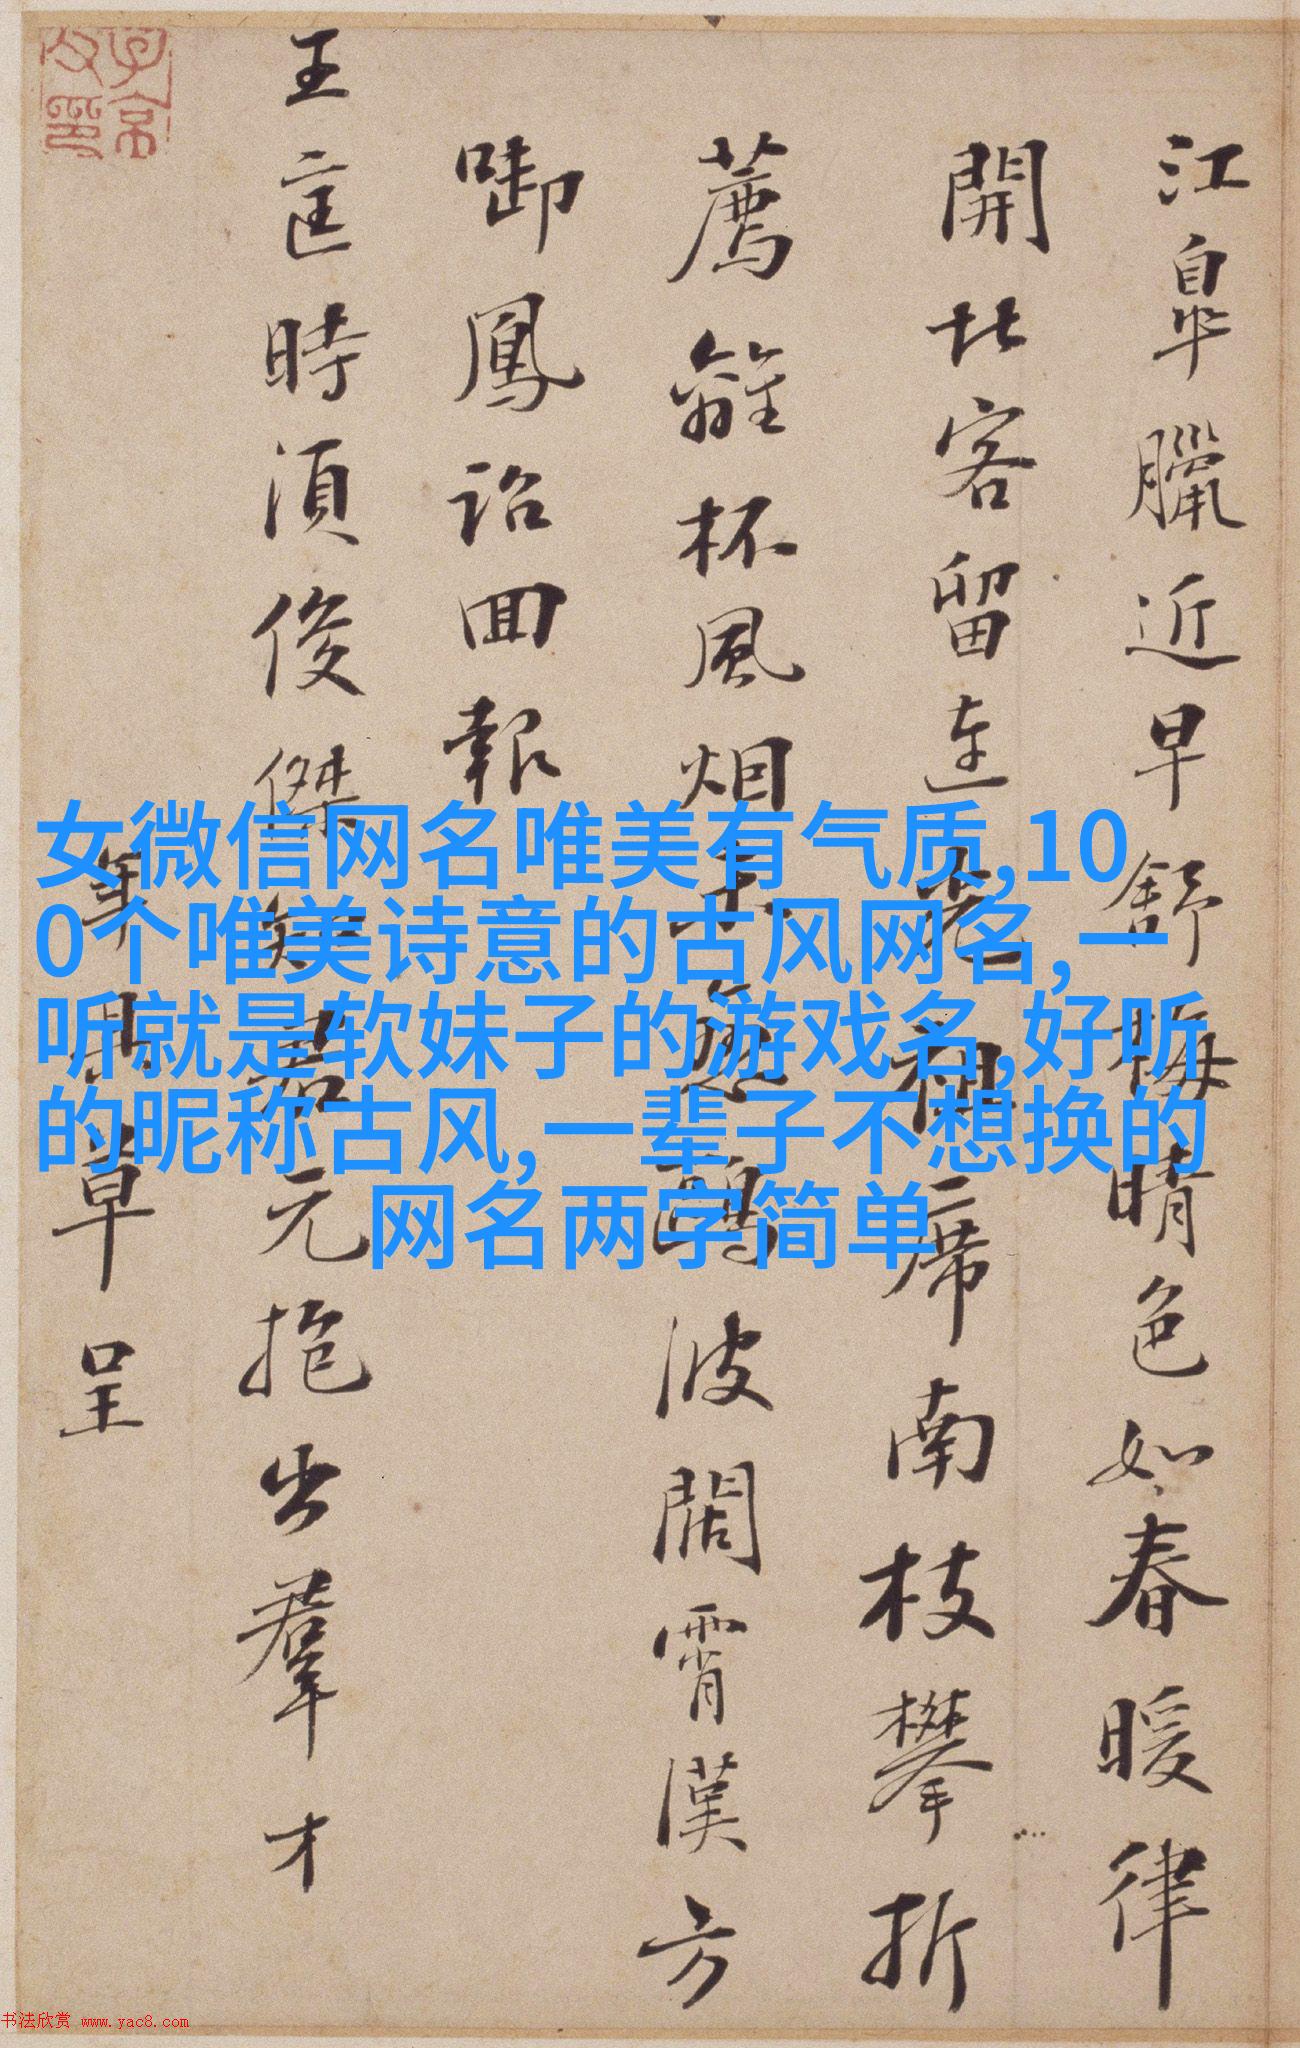 江皐臘近早舒梅晴色如春暖律
開北客留連席南枝攀折
薦離杯風烟波闊霄漢方
啣鳳詔回報
王匡時須俊傑知君元抱出羣才
草呈
子京父印
女微信网名唯美有气质,10
0个唯美诗意的古风网名,一
听就是软妹子的游戏名,好听
的昵称古风,一辈子不想换的
网名两字简单
书法欣赏 www.yac8.com